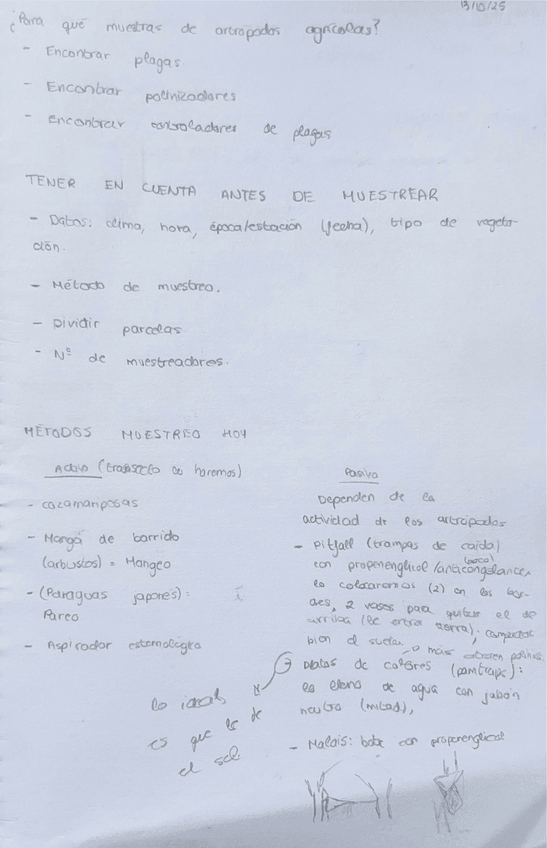 13/10/25
¿Para qué muestras de artropodos agrícolas?
- Encontrar plagas
- Encontrar polinizadores
- encontrar controladores de plagas
TENER EN CUENTA ANTES DE MUESTREAR
- Datos: clima, hora, época/estación (fecha), tipo de vegeta-
ción.
- Método de muestreo.
- Dividir parcelas
- Nº de muestreadores.
MÉTODOS MUESTREO HOY
Activo (transecto haremos)
- cazamariposas
- Manga de barrido
(arbustos) = Mangeo
- (Paraguas japonés):
Pareo
- Aspirador
lo ideal
es que les de
el sol
Pasivo
Dependen de la
actividad de los artropodos
- Pitfall (trampas de caída)
con propenenglicol /anticongelante,
(poco)
lo colocaremos (2) en los
2 vasos para quitar el de
arriba (le entra tierra), compactar
bien el suelo.
→ más atraen
Platos de colores (pamtraps):
se llena de agua con jabón
neutro (mitad),
- Malais: bote con propenenglicol